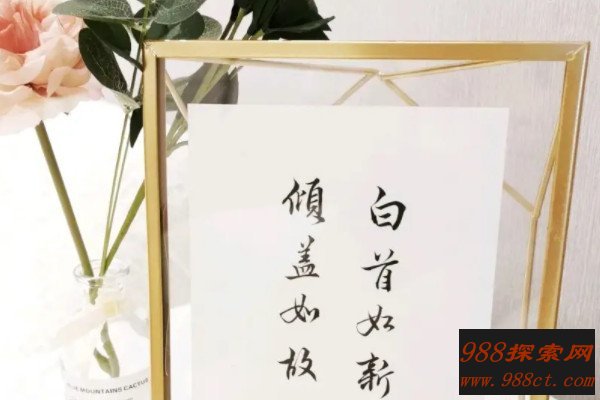 白首如新
倾盖如故
BLUE MOUNTAINS CACTUS
988探索网
www.988ct.com